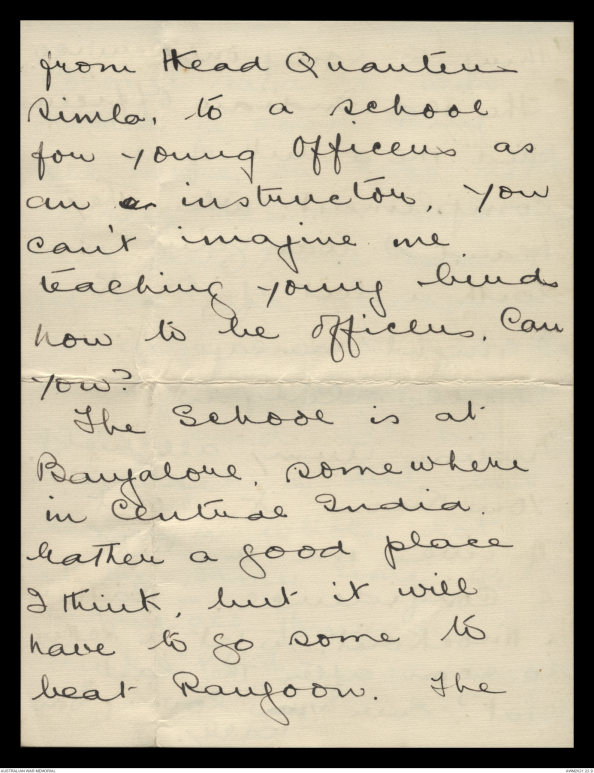 from Head Quarters
Simla, to a school
for young officers as
an a instructor, you
can't imagine me
teaching young birds
how to be officers. Can
you?
The School is at
Bangalore, somewhere
in Central India.
Rather a good place
I think, but it will
have to go some to
beat Rangoon. The
AUSTRALIAN WAR MEMORIAL